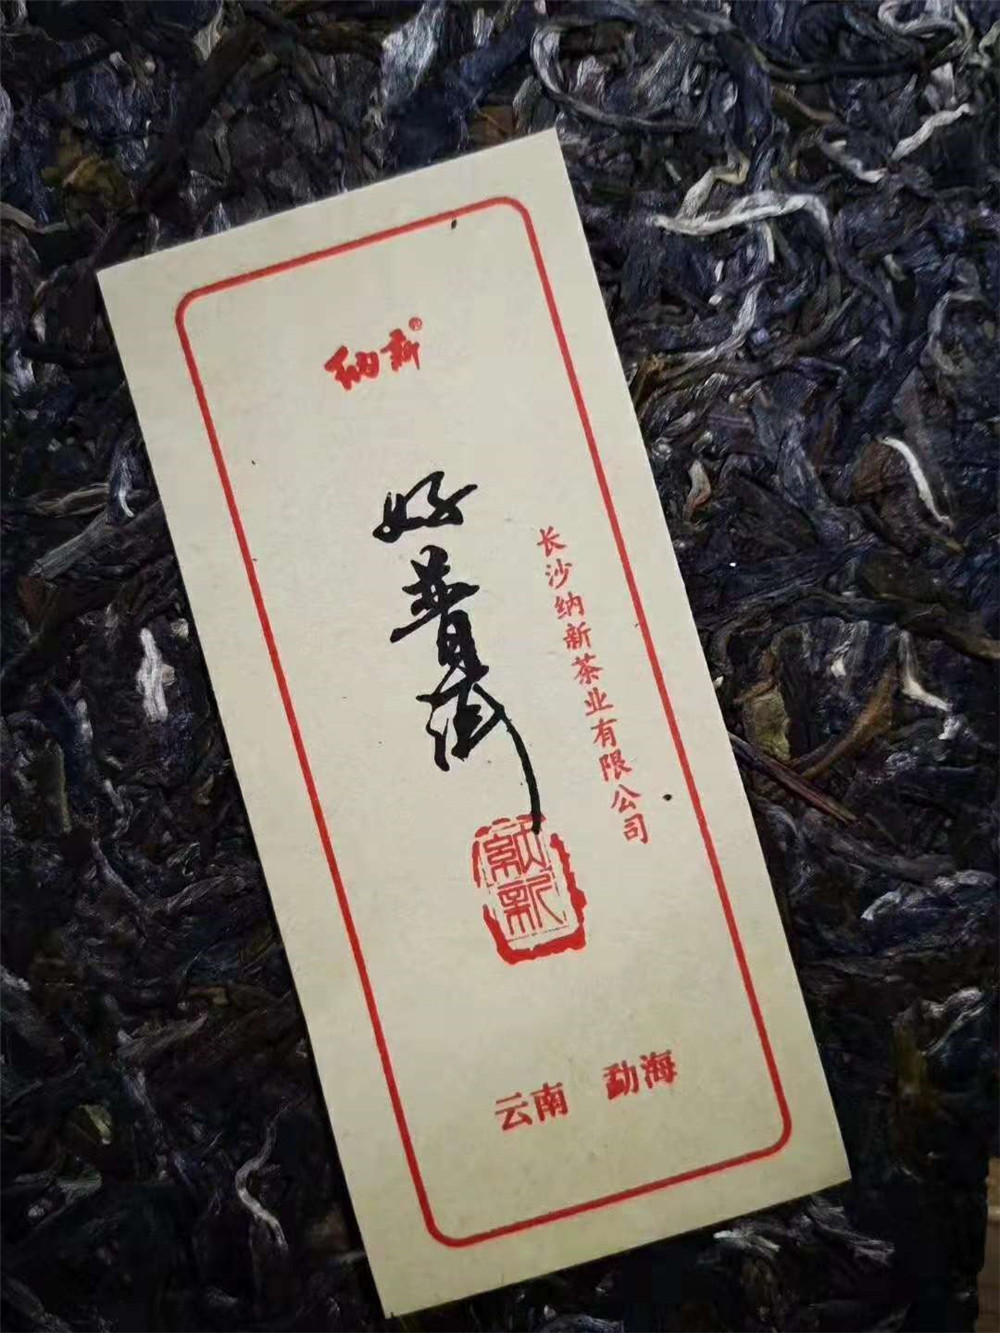 纳新®
好普洱
长沙纳新茶业有限公司
纳新
云南 勐海